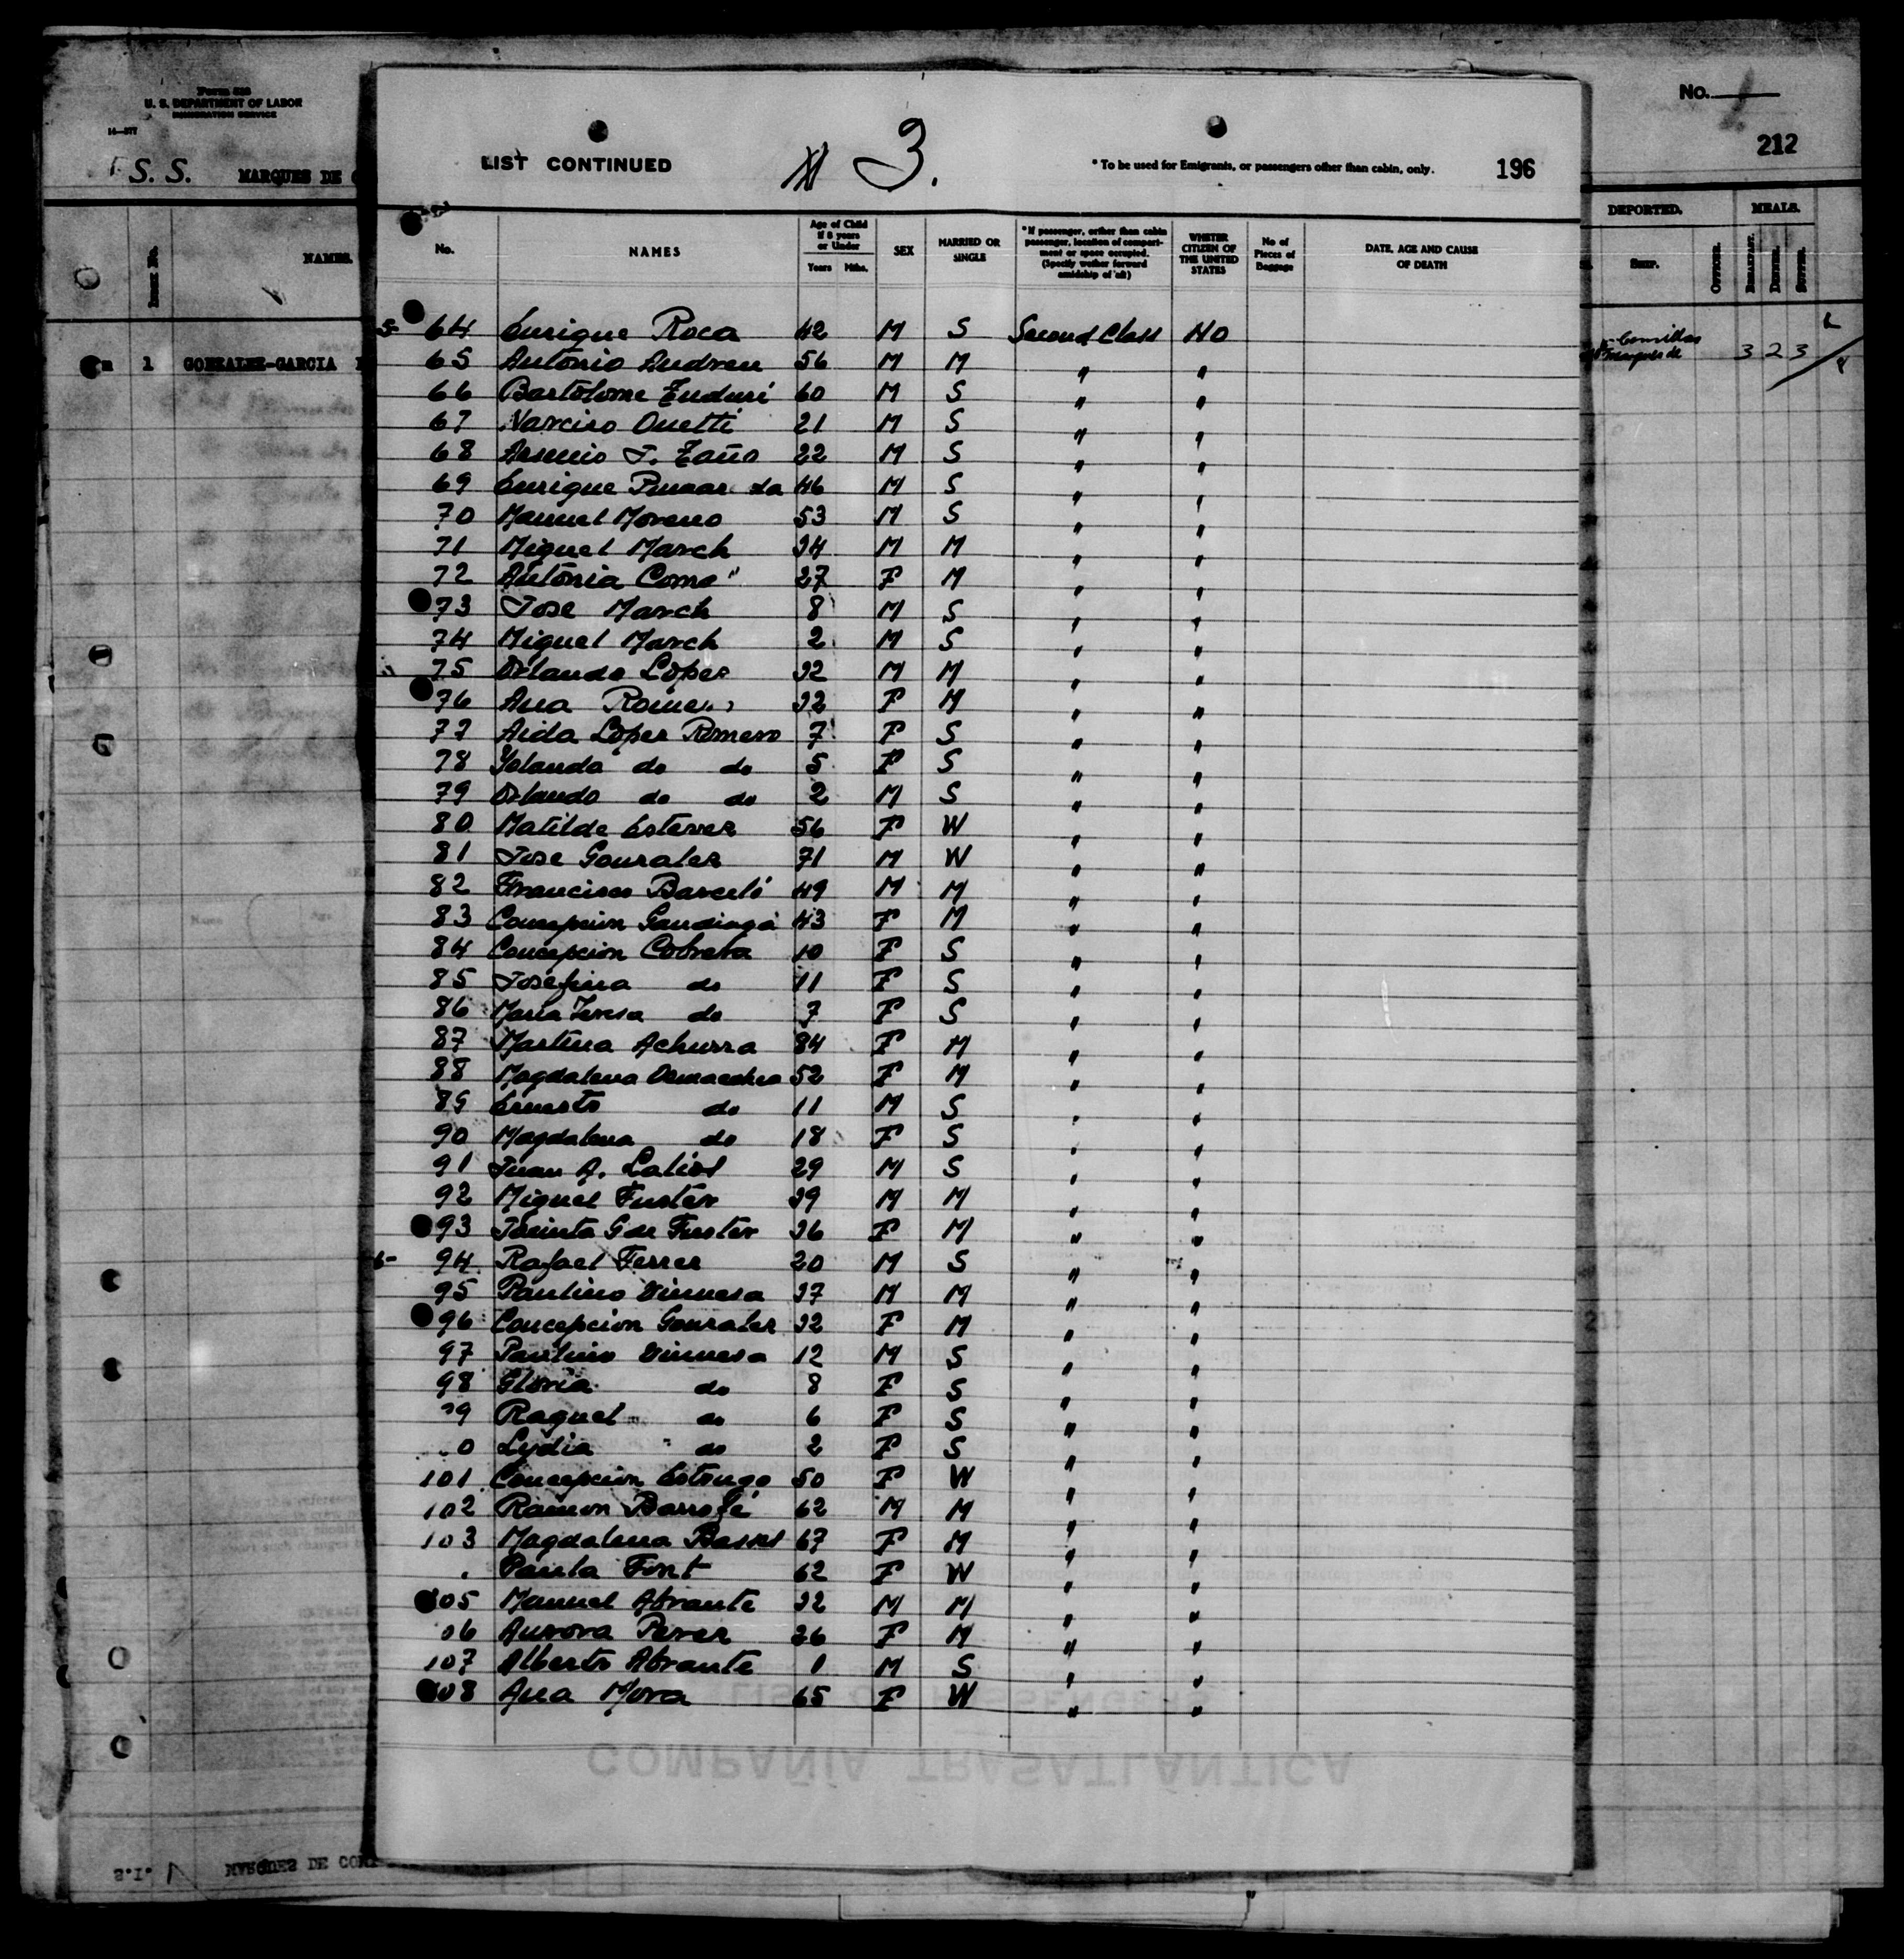 Form 630
U. S. DEPARTMENT OF LABOR
IMMIGRATION SERVICE
14—877
S. S. MARQUES DE C
NAMES.
1 GONZALEZ-GARCIA
No.
212
DEPORTED. MEALS.
SHIP. OFFICER. BREAKFAST. DINNER. SUPPER.
Comillas
Marques de 3 2 3
LIST CONTINUED 3. * To be used for Emigrants, or passengers other than cabin, only. 196
No. NAMES Age of Child if 8 years or Under Years Mths. SEX MARRIED OR SINGLE * If passenger, orther than cabin passenger, location of compartment or space occupied. (Specify wether forward amidship of aft) WHETER CITIZEN OF THE UNITED STATES No of Pieces of Baggage DATE, AGE AND CAUSE OF DEATH
5- 64 Enrique Roca 42 M S Second Class No
65 Antonio Andreu 56 M M " "
66 Bartolome 60 M S " "
67 Narciso Onetti 21 M S " "
68 Arsenio 22 M S " "
69 Enrique 46 M S " "
70 Manuel Moreno 53 M S " "
71 Miguel March 34 M M " "
72 Antonia 27 F M " "
73 Jose March 8 M S " "
74 Miguel March 2 M S " "
75 Orlando Lopez 32 M M " "
76 Ana Romero 32 F M " "
77 Aida Lopez Romero 7 F S " "
78 Yolanda do do 5 F S " "
79 Orlando do do 2 M S " "
80 Matilde Estevez 56 F W " "
81 Jose Gonzalez 71 M W " "
82 Francisco Barceló 49 M M " "
83 Concepcion 43 F M " "
84 Concepcion 10 F S " "
85 Josefina do 11 F S " "
86 Maria Teresa do 7 F S " "
87 Martina Achurra 84 F M " "
88 Magdalena 52 F M " "
89 Ernesto do 11 M S " "
90 Magdalena do 18 F S " "
91 Juan A. 29 M S " "
92 Miguel Fuster 39 M M " "
93 Jacinta G de Fuster 36 F M " "
6- 94 Rafael Ferrer 20 M S " "
95 Paulino Vinuesa 37 M M " "
96 Concepcion Gonzalez 32 F M " "
97 Paulino Vinuesa 12 M S " "
98 Gloria do 8 F S " "
99 Raquel do 6 F S " "
0 Lydia do 2 F S " "
101 Concepcion 50 F W " "
102 Ramon 62 M M " "
103 Magdalena 67 F M " "
Paula Font 62 F W " "
105 Manuel Abrante 32 M M " "
06 Aurora Perez 26 F M " "
107 Alberto Abrante 1 M S " "
108 Ana Mora 65 F W " "
COMPAÑIA TRASATLANTICA
MARQUES DE COMI